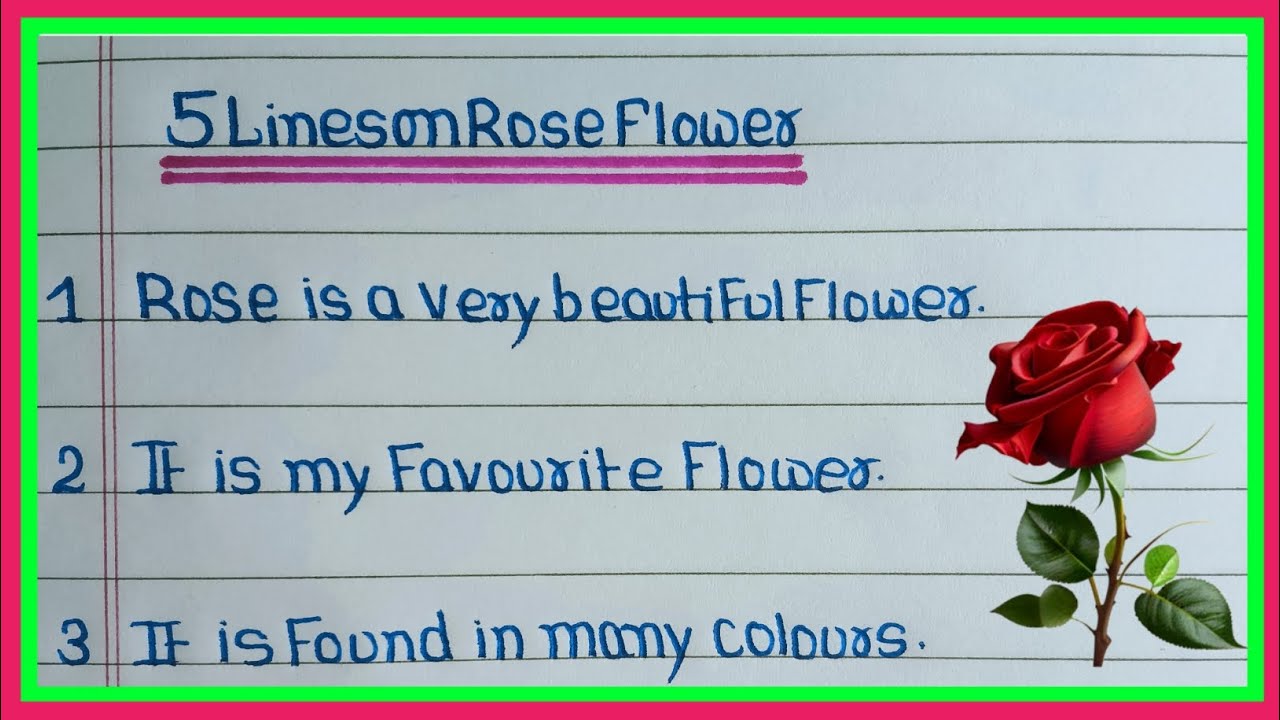 5 Lines on Rose Flower
1 Rose is a very beautiful Flower.
2 It is my Favourite Flower.
3 It is Found in many colours.